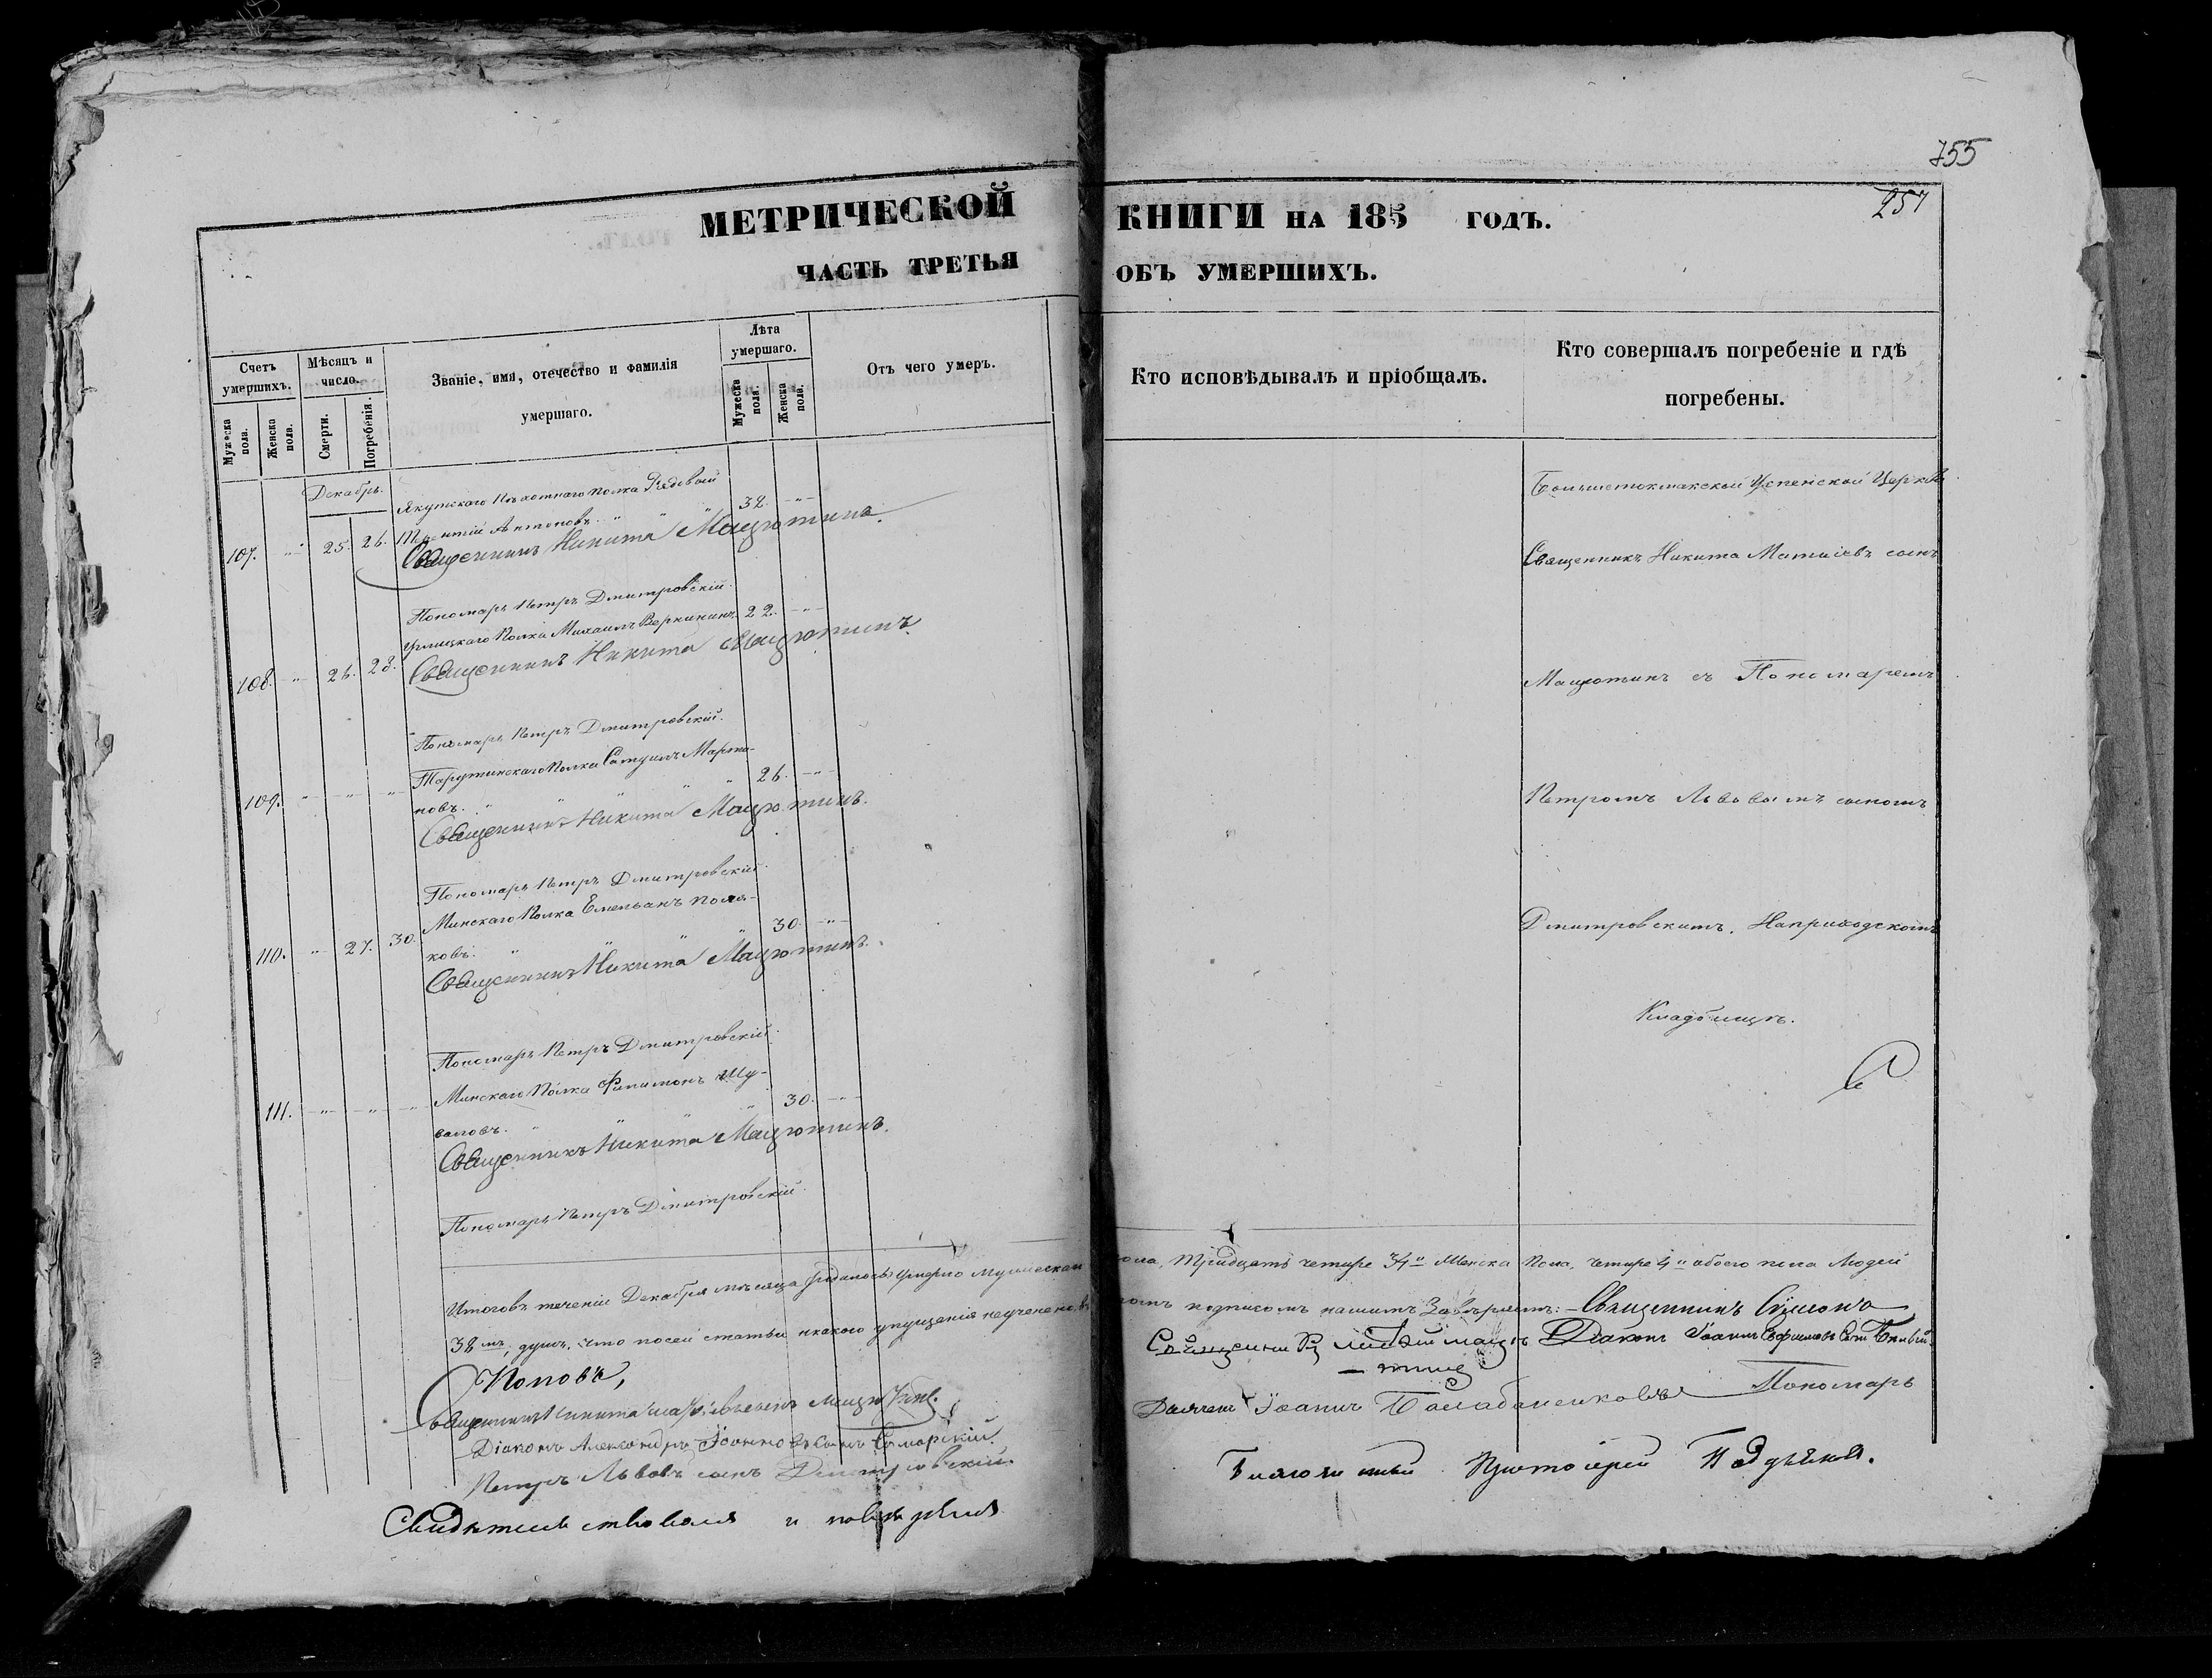 755
257
МЕТРИЧЕСКОЙ КНИГИ НА 185 ГОДЪ.
ЧАСТЬ ТРЕТЬЯ ОБЪ УМЕРШИХЪ.
Счетъ умершихъ.
Мужеска пола.
Женска пола.
Мѣсяцъ и число.
Смерти.
Погребенія.
Званіе, имя, отечество и фамилія умершаго.
Лѣта умершаго.
Мужеска пола.
Женска пола.
Отъ чего умеръ.
Кто исповѣдывалъ и пріобщалъ.
Кто совершалъ погребеніе и гдѣ погребены.
Декабрь.
Якутскаго Пѣхотнаго полка Рядовой
107. " 25. 26. Терентій Антоновъ. " " " 32. "
Священникъ Никита Мацютинъ.
Пономарь Петръ Дмитровскій.
108. " 26. 28. Углицкаго Полка Михаилъ 22. "
Священникъ Никита Мацютинъ.
Пономарь Петръ Дмитровскій.
Тарутинскаго Полка Марты-
109. " " " новъ. " " " " 26. "
Священникъ Никита Мацютинъ.
Пономарь Петръ Дмитровскій.
Минскаго Полка Емельянъ Поля-
110. " 27. 30. ковъ. " " " 30. "
Священникъ Никита Мацютинъ.
Пономарь Петръ Дмитровскій.
Минскаго Полка Филимонъ Шу-
111. " " " валовъ. " " " 30. "
Священникъ Никита Мацютинъ.
Пономарь Петръ Дмитровскій.
Большетокмакской Успенской Церкви
Священникъ Никита Матвіевъ сынъ
Мацютинъ съ Пономаремъ
Петромъ Львовымъ сыномъ
Дмитровскимъ. На приходскомъ
Кладбищѣ.
Итого въ теченіи Декабря мѣсяца умерло мужеска пола, тридцать четыре 34 Женска Пола, четыре 4 обоего пола Людей
38 душъ, что по сей статьи никакого упущенія не учинено, въ томъ подписомъ нашимъ завѣряемъ: Священникъ Симонъ
Поповъ,
Діаконъ Іоаннъ сынъ
Священникъ Никита Матвіевъ сынъ Мацютинъ.
Іоаннъ Балабаненковъ Пономарь
Діаконъ Александръ Іоанновъ сынъ Самарскій.
Петръ Львовъ сынъ Дмитровскій.
Свидѣтельствовалъ и повѣрялъ Благочинный Протоіерей